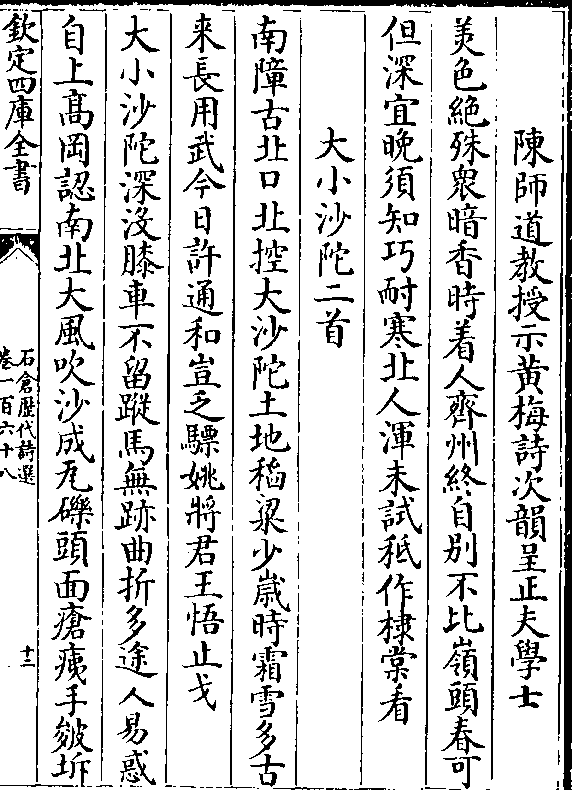 陳師道教授示黄梅詩次韻呈正夫學士
美色絶殊衆暗香時着人齊州終自别不比嶺頭春可
但深宜晚須知巧耐寒北人渾未試秪作棣棠看
大小沙陀二首
南障古北口北控大沙陀土地稻粱少嵗時霜雪多古
来長用武今日許通和豈乏驃姚將君王悟止戈
大小沙陀深没膝車不留蹤馬無跡曲折多途人易惑
自上髙岡認南北大風吹沙成瓦礫頭面瘡痍手皴坼
欽定四庫全書
石倉歴代詩選
卷一百六十八
十三